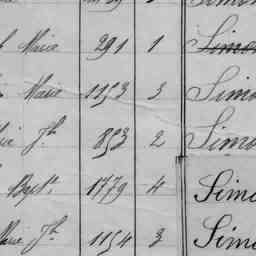 Marie 291 1 Simo
Marie 1153 3 Simo
Jh 853 2 Simo
Bapte 1779 4 Simo
Marie Jh 1154 3 Simo